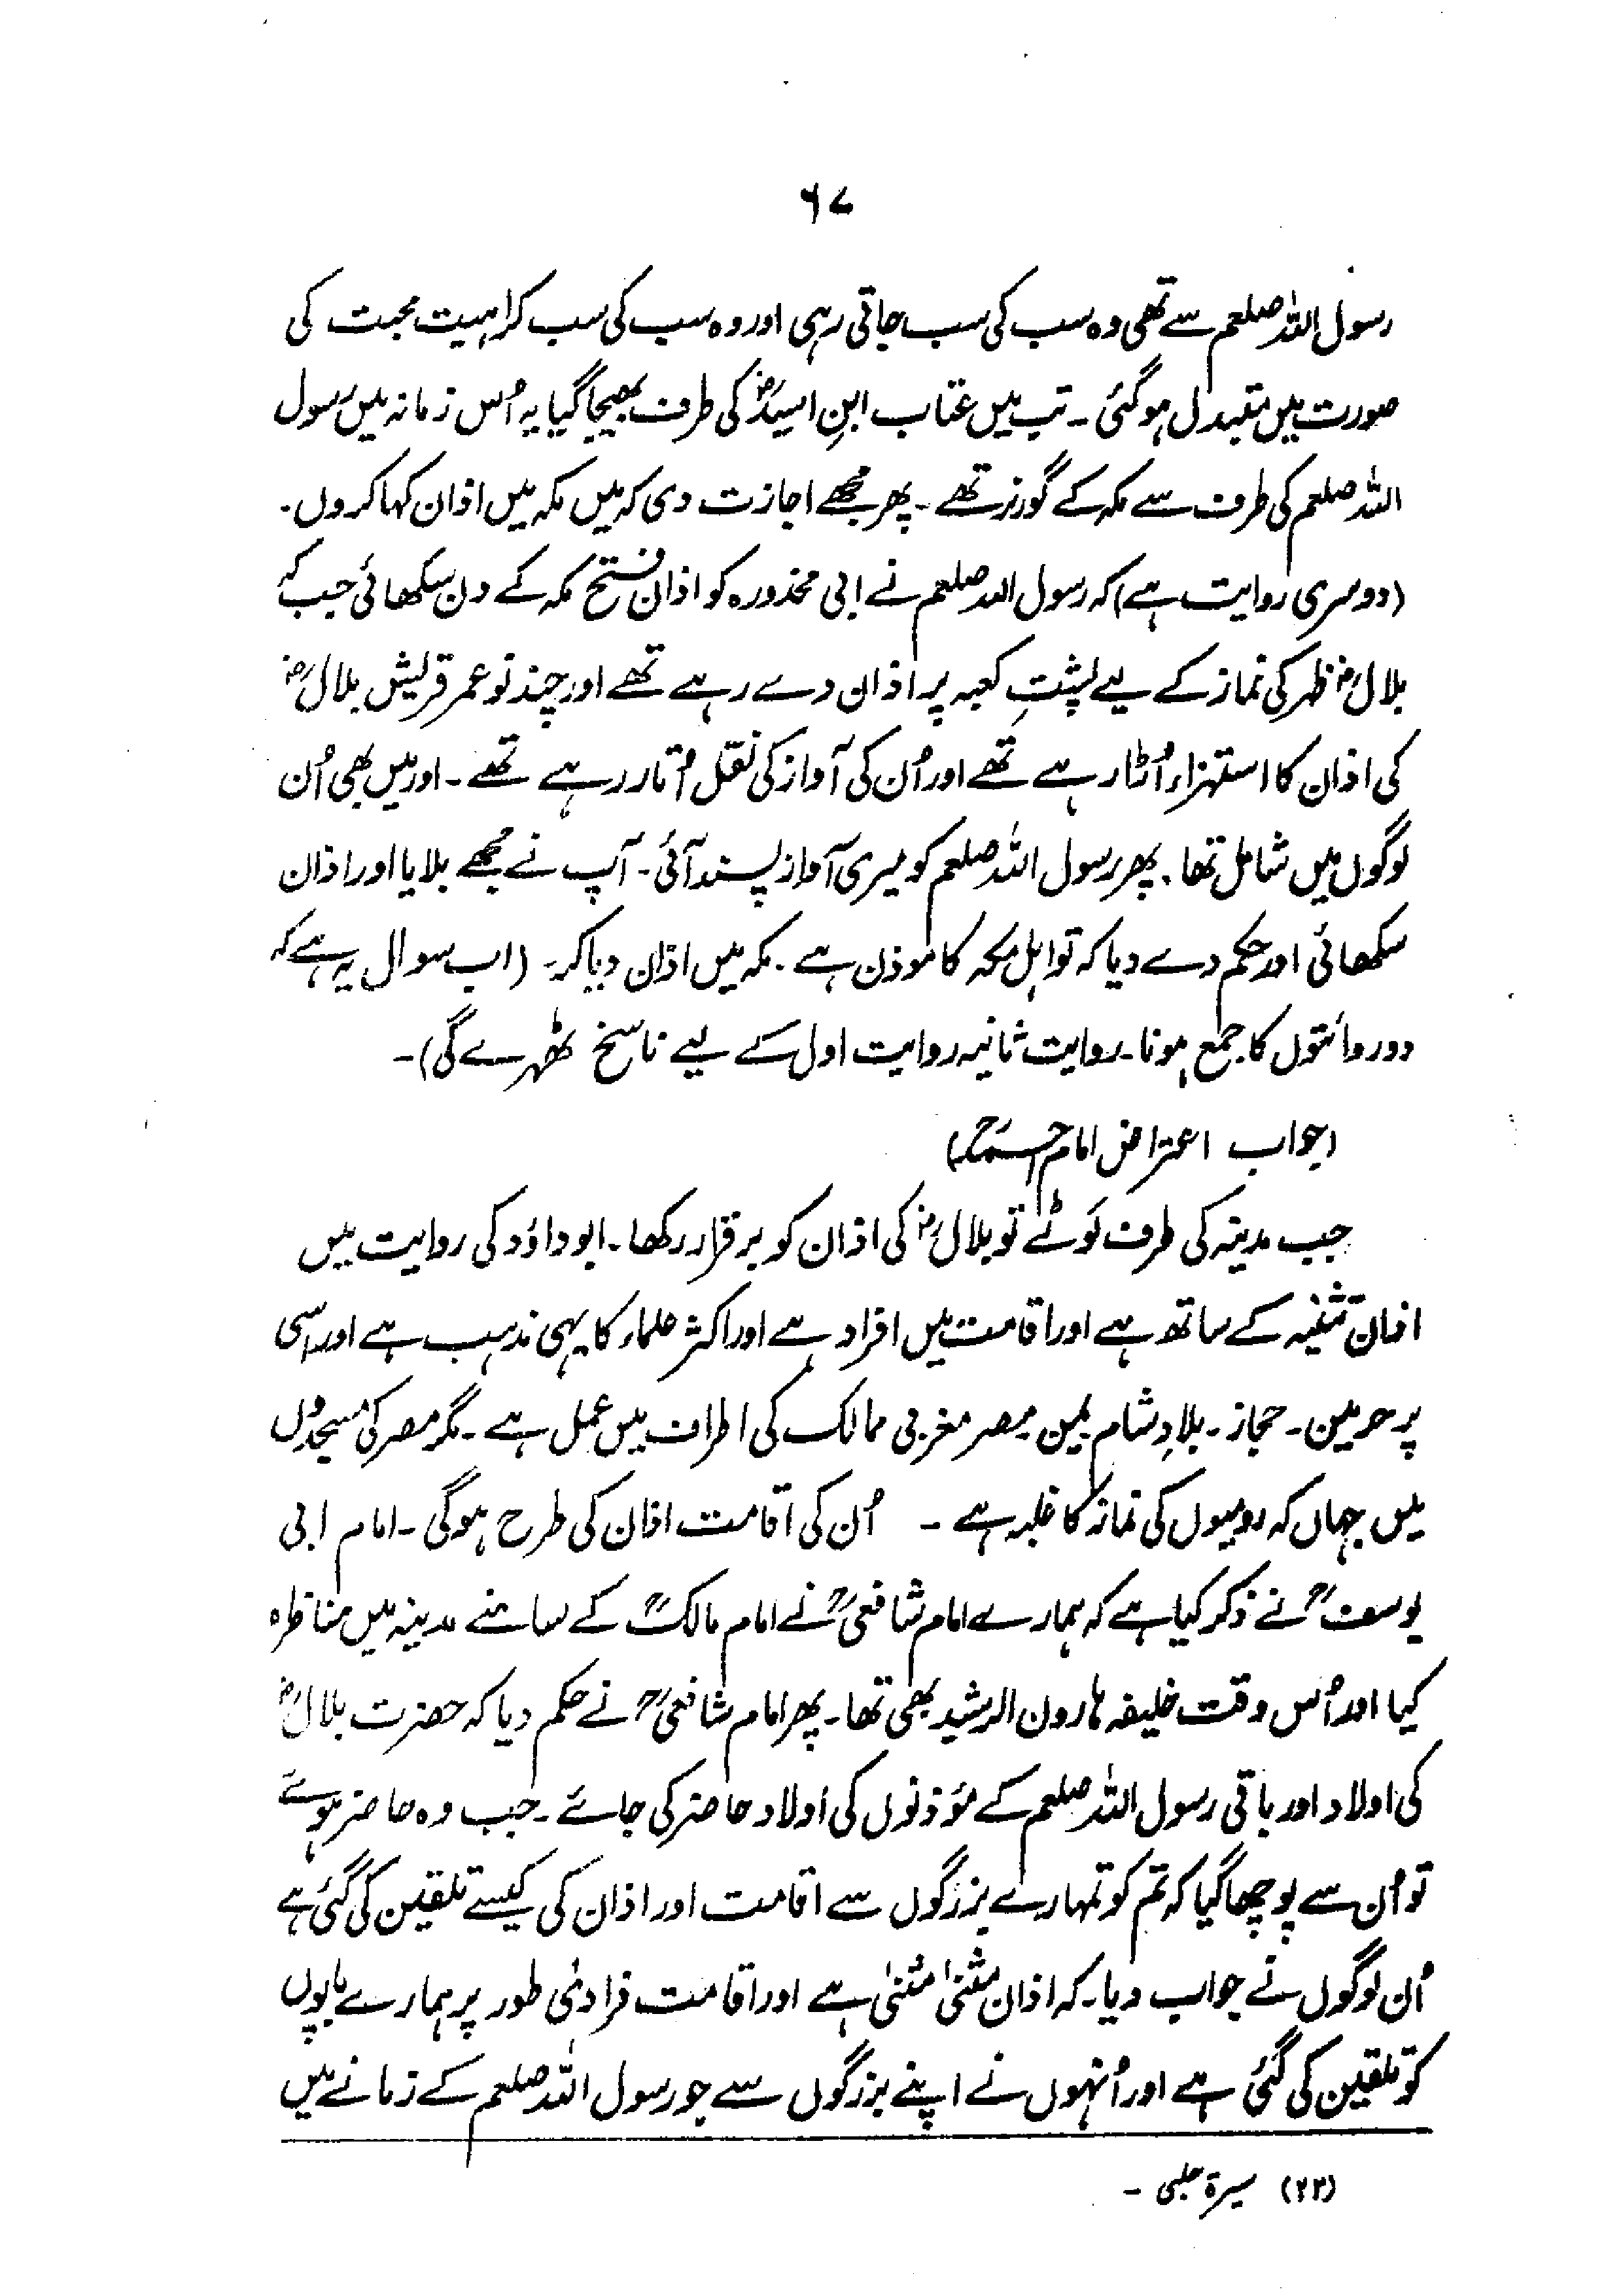 ۶۷
رسول اللہ صلعم سے تھی وہ سب کی سب جاتی رہی اور وہ سب کی سب کراہیت محبت کی
صورت میں متبدل ہوگئی ۔ تب میں عتاب ابنِ اسیدؓ کی طرف بھیجا گیا یہ اُس زمانہ میں رسول
اللہ صلعم کی طرف سے مکہ کے گورنر تھے ۔ پھر مجھے اجازت دی کہ میں مکہ میں اذان کہا کروں ۔
(دوسری روایت ہے) کہ رسول اللہ صلعم نے ابی محذورہ کو اذان فتح مکہ کے دن سکھائی جب کہ
بلالؓ ظہر کی نماز کے لیے پشتِ کعبہ پر اذان دے رہے تھے اور چند نو عمر قریش بلالؓ
کی اذان کا استہزاء اُڑا رہے تھے اور اُن کی آواز کی نقل اُتار رہے تھے ۔ اور میں بھی اُن
لوگوں میں شامل تھا ۔ پھر رسول اللہ صلعم کو میری آواز پسند آئی ۔ آپ نے مجھے بلایا اور اذان
سکھائی اور حکم دے دیا کہ تو اہل مکہ کا موذن ہے ۔ مکہ میں اذان دیا کر ۔ (اب سوال یہ ہے کہ
دو روائتوں کا جمع ہونا ۔ روایت ثانیہ روایت اول کے لیے ناسخ ٹھہرے گی) ۔
(جواب اعتراض امام احمدؒ)
جب مدینہ کی طرف لَوٹے تو بلالؓ کی اذان کو برقرار رکھا ۔ ابو داؤد کی روایت میں
اذان تثنیہ کے ساتھ ہے اور اقامت میں افراد ہے اور اکثر علماء کا یہی مذہب ہے اور اسی
پر حرمین ۔ حجاز ۔ بلادِ شام یمن مصر مغربی ممالک کی اطراف میں عمل ہے ۔ مگر مصر کی مسجدوں
میں جہاں کہ رومیوں کی نماز کا غلبہ ہے ۔ اُن کی اقامت اذان کی طرح ہوگی ۔ امام ابی
یوسفؒ نے ذکر کیا ہے کہ ہمارے امام شافعیؒ نے امام مالکؒ کے سامنے مدینہ میں مناظرہ
کیا اور اُس وقت خلیفہ ہارون الرشید بھی تھا ۔ پھر امام شافعیؒ نے حکم دیا کہ حضرت بلالؓ
کی اولاد اور باقی رسول اللہ صلعم کے مؤذنوں کی اولاد حاضر کی جائے ۔ جب وہ حاضر ہوئے
تو اُن سے پوچھا گیا کہ تم کو تمہارے بزرگوں سے اقامت اور اذان کی کیسے تلقین کی گئی ہے
اُن لوگوں نے جواب دیا ۔ کہ اذان مثنیٰ مثنیٰ ہے اور اقامت فرادیٰ طور پر ہمارے باپوں
کو تلقین کی گئی ہے اور اُنہوں نے اپنے بزرگوں سے جو رسول اللہ صلعم کے زمانے میں
(۲۳) سیرۃ حلبی ۔